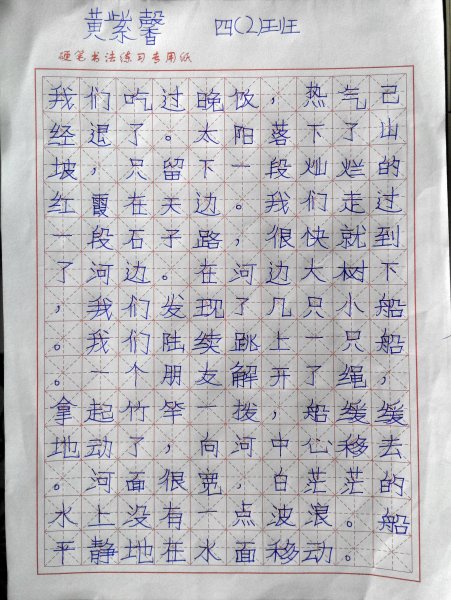 黄紫馨 四(2)班
硬笔书法练习专用纸
我们吃过晚饭，热气已
经退了。太阳落下了山
坡，只留下一段灿烂的
红霞在天边。我们走过
一段石子路，很快就到
了河边。在河边大树下
，我们发现了几只小船
。我们陆续跳上一只船
。一个朋友解开了绳，
拿起竹竿一拨，船缓缓
地动了，向河中心移去
。河面很宽，白茫茫的
水上没有一点波浪。船
平静地在水面移动。